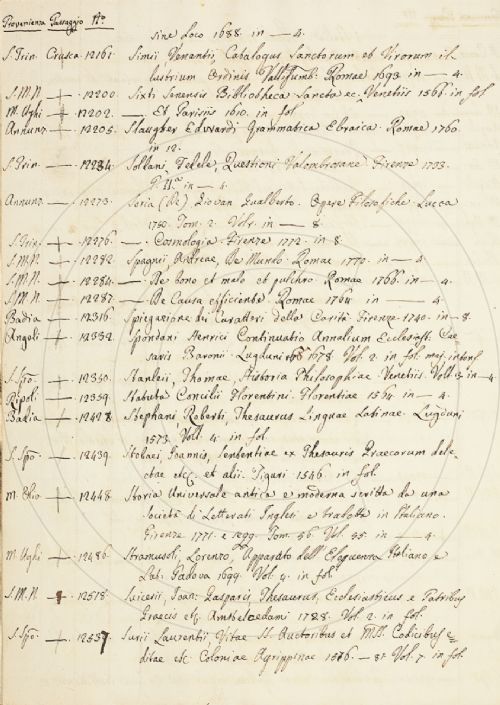 Provenienza Passaggio N.o
sine Loco 1688. in — 4.
S. Trin. Crusca. 12161. Simii Venantii, Catalogus Sanctorum et Virorum il-
lustrium Ordinis Vallisumb. Romae 1693 in — 4.
S. M. N. + 12200. Sixti Senensis Bibliotheca Sancta ec. Venetiis 1566. in fol.
M. Ughi + 12202. — Et Parisiis 1610. in fol.
Annunz. — 12205. Slaugher Edwardi Grammatica Ebraica. Romae 1760.
in 12.
S. Trin. — 12234. Soldani, Fedele, Questioni Valombrosane. Firenze 1733.
in — 4.
Annunz. — 12273. Soria (De) Giovan Gualberto. Opere Filosofiche Lucca
1750. Tom. 2. Vol. in — 8.
S. Trin. + 12276. — Cosmologia. Firenze 1772. in 8.
S. M. N. + 12282. Spagni Andreae, De Mundo. Romae 1770. in — 4.
S. M. N. + 12284. — De bono et malo et pulchro. Romae 1766. in — 4.
S. M. N. + 12287. — De Causa efficiente. Romae in — 4.
Badia — 12316. Spiegazione dei Caratteri della Carità. Firenze 1740. in — 8.
Angoli + 12332. Spondani Henrici Continuatio Annalium Ecclesiast. Cae
saris Baronii. Lugduni 1678. Vol. 2. in fol.
S. Spo. + 12350. Stanleii, Thomae, Historia Philosophiae. Venetiis. Voll. 3. in — 4
Ripoli — 12359. Statuta Concilii Florentini. Florentiae in — 4.
Badia + 12428. Stephani Roberti, Thesaurus Linguae Latinae. Lugduni
1573. Voll. 4. in fol.
S. Spo. — 12439. Stobaei, Joannis, Sententiae ex Thesauris Graecorum dele
ctae etc. et alii. Tiguri 1546. in fol.
M. Ohio + 12448. Storia Universale antica e moderna scritta da una
Società di Letterati Inglesi e tradotta in Italiano.
Firenze 1771. e segg. Tom. 56. Vol. in — 4.
M. Ughi — 12486. Stramusoli, Lorenzo, Apparato dell'Eloquenza Italiano e
Lat. Padova 1699. Vol. 4. in fol.
S. M. N. 12518. Suicerii, Joan. Gasparis, Thesaurus, Ecclesiasticus e Patribus
Graecis etc. Amstelaedami 1728. Vol. 2. in fol.
S. Spo. + 12537. Surii Laurentii Vitae SS. Auctoribus et MSS. Codicibus e-
ditae etc. Coloniae Agrippinae Vol. 7. in fol.